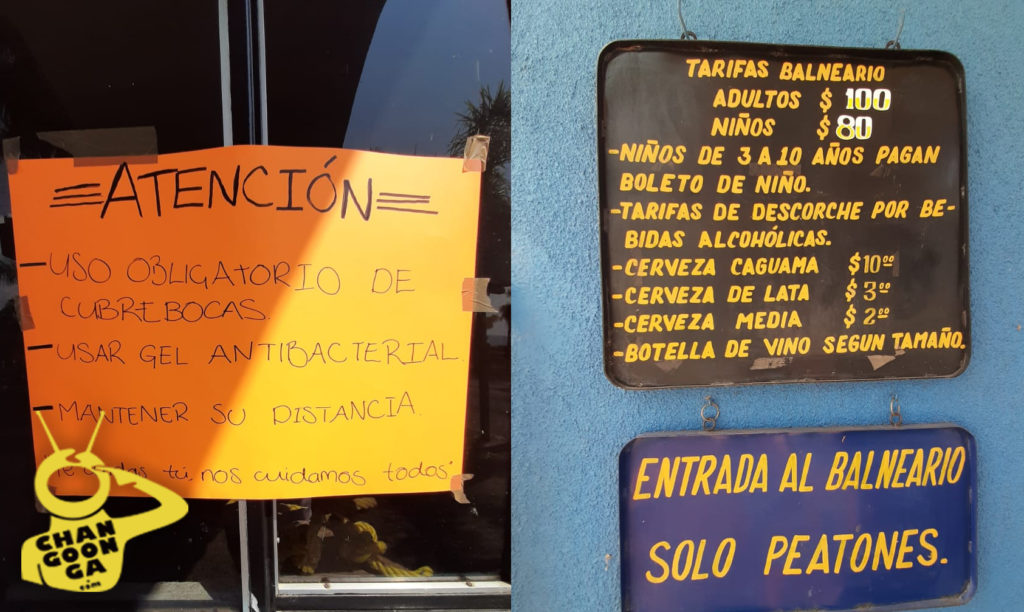 ATENCIÓN
-USO OBLIGATORIO DE
CUBREBOCAS.
-USAR GEL ANTIBACTERIAL.
-MANTENER SU DISTANCIA.
tú, nos cuidamos todos"
CHAN
GOON
GA
.com
TARIFAS BALNEARIO
ADULTOS $ 100
NIÑOS $80
-NIÑOS DE 3 A 10 AÑOS PAGAN
BOLETO DE NIÑO.
-TARIFAS DE DESCORCHE POR BE-
BIDAS ALCOHÓLICAS.
-CERVEZA CAGUAMA $10.00
-CERVEZA DE LATA $3.00
-CERVEZA MEDIA $2.00
-BOTELLA DE VINO SEGUN TAMAÑO.
ENTRADA AL BALNEARIO
SOLO PEATONES.